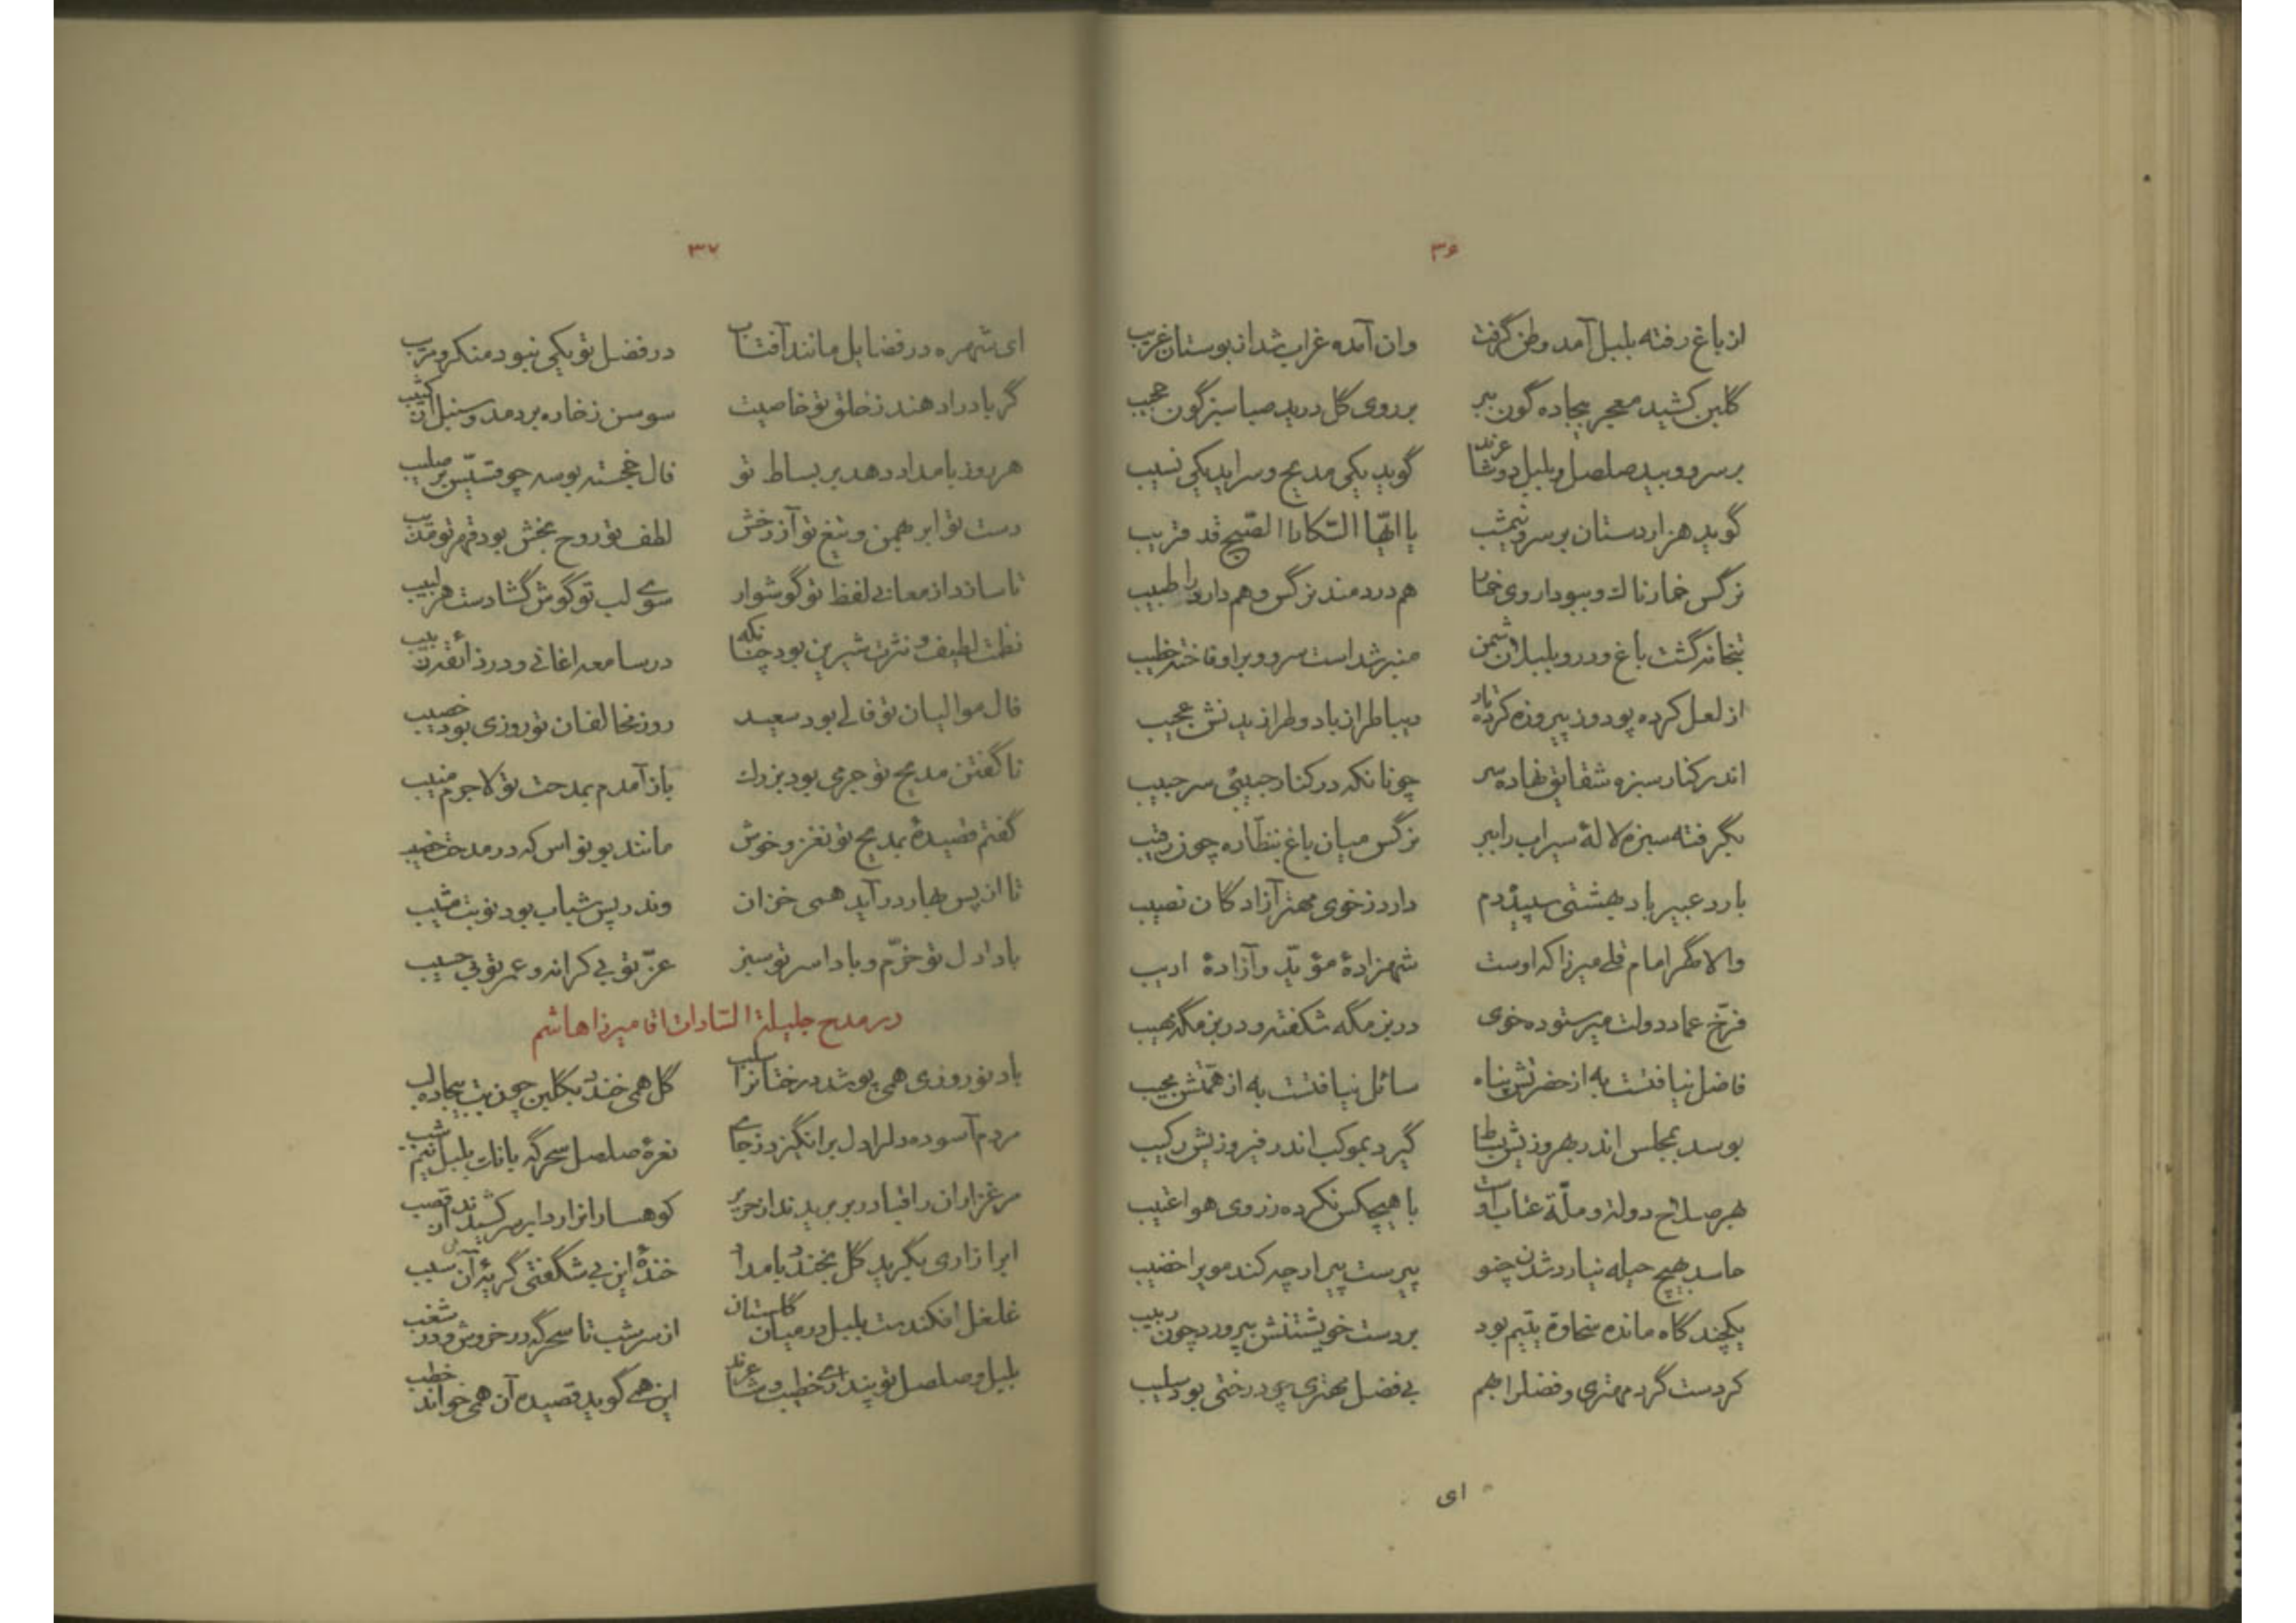 ۳۶
از باغ رفته بلبل آمد وطن گرفت وان آمده غراب شد از بوستان غریب
گلبن کشید معجر بیجاده گون ببر بر روی گل درید صبا سبزگون حجیب
بر سرو و بید صلصل و بلبل دو شاعرند گوید یکی مدیح و سراید یکی نسیب
گوید هزاردستان بر سرو نیمشب یا ایّها السّکارا الصّبح قد قریب
نرگس خمارناک و ببو داروی خمار هم دردمند نرگس و هم دارو را طبیب
بتخانه گشت باغ و درو بلبلان شمن منبر شد است سرو و براو فاخته خطیب
از لعل کرده پود و ز پیروزه کرده تار دیبا طراز باد و طرازیدنش عجیب
اندر کنار سبزه شقایق نهاده سر چونانکه در کنار حبیبی سر حبیب
بگرفته سبزه لالهٔ سیراب را ببر نرگس میان باغ بنظّاره چون رقیب
بارد عبیر باد بهشتی سپیده دم دارد ز خوی مهتر آزادگان نصیب
والا مگر امام قلی میرزا که اوست شهزادهٔ مؤیّد و آزادهٔ ادیب
فرّخ عماد دولت میر ستوده خوی در بزمگه شکفته و در رزمگه مهیب
فاضل نیافتست به از حضرتش پناه سائل نیافتست به از همّتش مجیب
بوسد بمجلس اندر بهروزیش بساط گیرد بموکب اندر فیروزیش رکیب
بهر صلاح دولة و ملّة عتاب اوست با هیچکس نکرده ز روی هوا عتیب
حاسد بهیچ حیله نیارد شدن چنو پیرست پیر ارچه کند مو را خضیب
یکچند گاه مانده سخاوة یتیم بود بر دست خویشتنش بپرورد چون ربیب
کردست گرد مهتری و فضل را بهم بی فضل مهتری چو درختی بود سلیب
ای
۳۷
ای شهره در فضایل مانند آفتاب در فضل تو یکی نبود منکر و مریب
گر باد را دهند ز خلق تو خاصیت سوسن ز خاره بردمد و سنبل از کثیب
هر روز بامداد دهد بر بساط تو فال خجسته بوسه چو قسّیس بر صلیب
دست تو ابر بهمن و تیغ تو آذرخش لطف تو روح بخش بود قهر تو مذیب
تا سازد از معانی لفظ تو گوشوار سوی لب تو گوش گشادست هر لبیب
نظمت لطیف و نثرت شیرین بود چنانکه در سامعه اغانی و در ذائقه زبیب
فال موالیان تو فالی بود سعید روز مخالفان تو روزی بود خصیب
ناگفتن مدیح تو جرمی بود بزرک باز آمدم بمدحت تو لاجرم منیب
گفتم قصیدهٔ بمدیح تو نغز و خوش مانند بونواس که در مدحت خصیب
تا از پس بهار درآید همی خزان وندر پس شباب بود نوبت مشیب
بادا دل تو خرّم و بادا سر تو سبز عزّ تو بی کرانه و عمر تو بی حسیب
در مدح جلیلة السّادات اقا میرزا هاشم
باد نوروزی همی پوشد درختانرا سلب گل همی خندد بگلبن چون بت بیجاده لب
مردم آسوده دل را دل برانگیزد ز جای نعرهٔ صلصل سحرگه بانک بلبل نیم شب
مرغزاران را قبا در بر بریدند از حریر کوهساران را ردا بر سر کشیدند از قصب
ابر آزاری بگرید گل بخندد بامداد خندهٔ این بی شگفتی گریهٔ آن بی سبب
غلغل افکندست بلبل در میان گلستان از سر شب تا سحرگه در خروش و در شغب
بلبل و صلصل تو پنداری خطیب و شاعرند این همی گوید قصیده آن همی خواند خطب